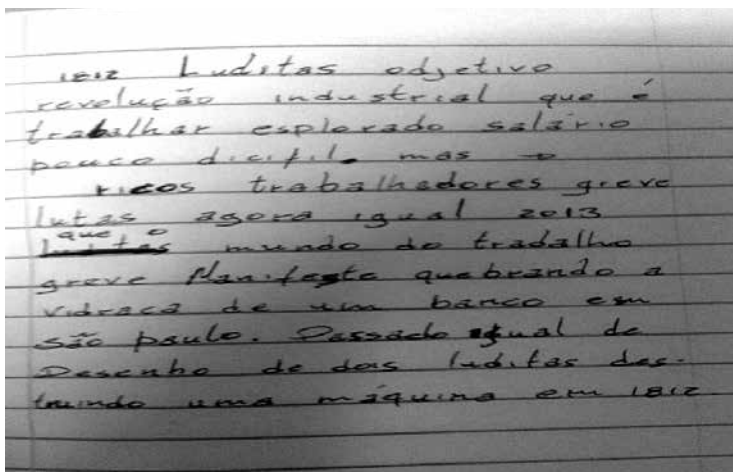 1812 Luditas odjetivo
revolução industrial que é
trabalhar esplorado salário
pouco dicifil mas o
ricos trabalhadores greve
lutas agora igual 2013
que o
mundo do tradalho
greve Manifesta quebrando a
vidraca de um banco em
são paulo. Passado igual de
Desenho de dois luditas des-
truindo uma máquina em 1812